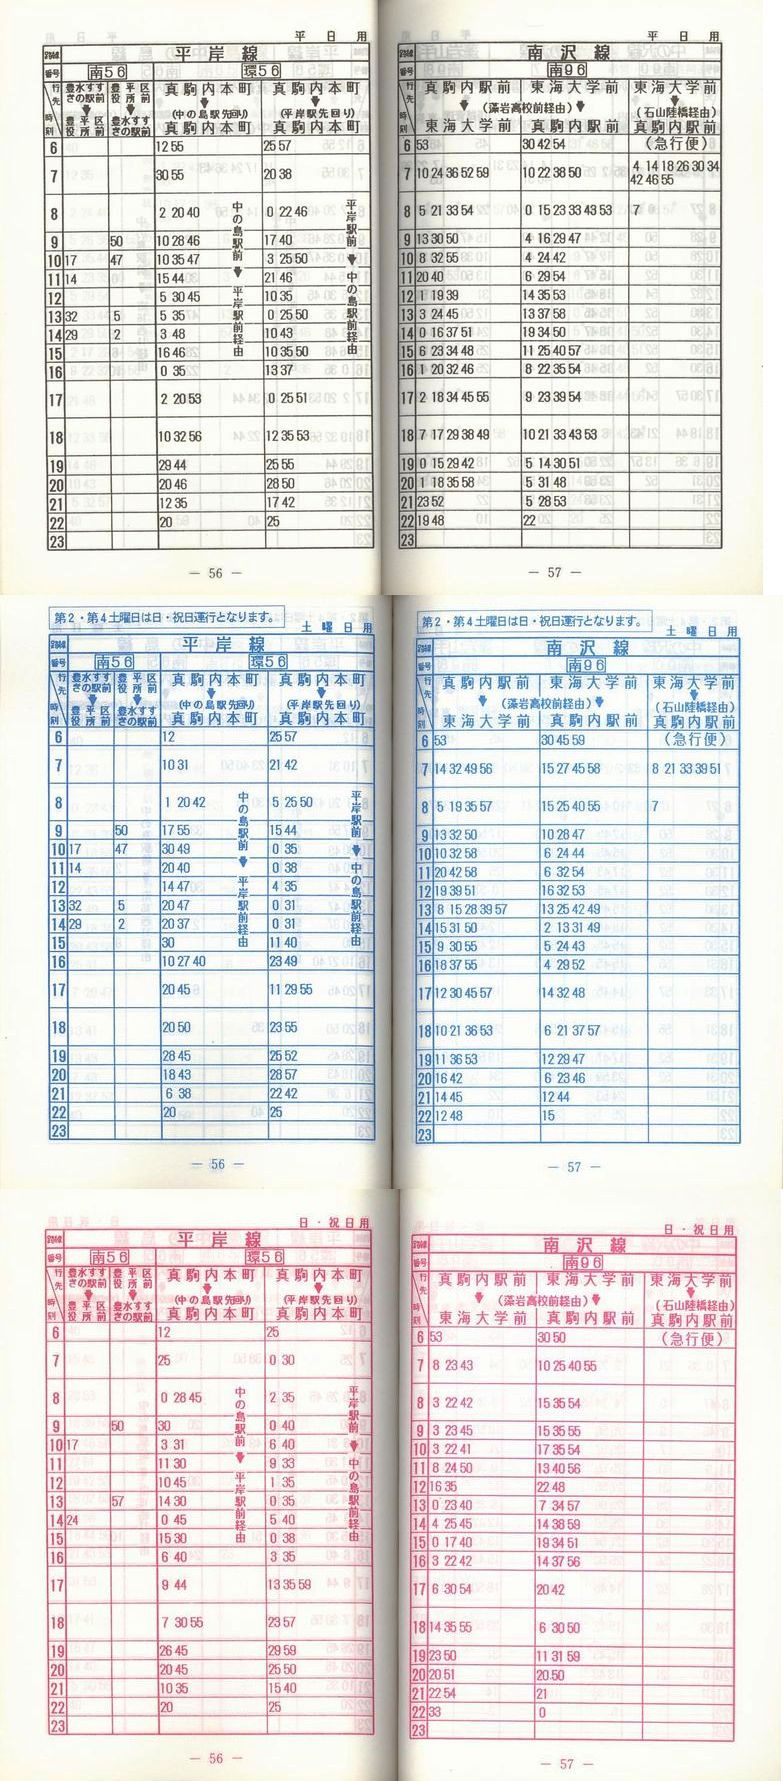 平日用
路線 平岸線
番号 南56 環56
行先 時刻 豊水すすきの駅前 豊平区役所前 真駒内本町 真駒内本町
豊平区役所前 豊水すすきの駅前 (中の島駅先回り) (平岸駅先回り)
真駒内本町 真駒内本町
中の島駅前 平岸駅前経由
平岸駅前 中の島駅前経由
6 12 55 25 57
7 30 55 20 38
8 2 20 40 0 22 46
9 50 10 28 46 17 40
10 17 47 10 35 47 3 25 50
11 14 15 44 21 46
12 5 30 45 10 35
13 32 5 5 35 0 25 50
14 29 2 3 48 10 43
15 16 46 10 35 50
16 0 35 13 37
17 2 20 53 0 25 51
18 10 32 56 12 35 53
19 29 44 25 55
20 20 46 28 50
21 12 35 17 42
22 20 25
23
— 56 —
平日用
路線 南沢線
番号 南96
行先 時刻 真駒内駅前 東海大学前 東海大学前
(藻岩高校前経由) (石山陸橋経由)
東海大学前 真駒内駅前 真駒内駅前
6 53 30 42 54 (急行便)
7 10 24 36 52 59 10 22 38 50 4 14 18 26 30 34
42 46 55
8 5 21 33 54 0 15 23 33 43 53 7
9 13 30 50 4 16 29 47
10 8 32 55 4 24 42
11 20 40 6 29 54
12 1 19 39 14 35 53
13 3 24 45 13 37 58
14 0 16 37 51 19 34 50
15 6 23 34 48 11 25 40 57
16 1 20 32 46 8 22 35 54
17 2 18 34 45 55 9 23 39 54
18 7 17 29 38 49 10 21 33 43 53
19 0 15 29 42 5 14 30 51
20 1 18 35 58 5 31 48
21 23 52 5 28 53
22 19 48 22
23
— 57 —
第2・第4土曜日は日・祝日運行となります。
土曜日用
路線 平岸線
番号 南56 環56
行先 時刻 豊水すすきの駅前 豊平区役所前 真駒内本町 真駒内本町
豊平区役所前 豊水すすきの駅前 (中の島駅先回り) (平岸駅先回り)
真駒内本町 真駒内本町
中の島駅前 平岸駅前経由
平岸駅前 中の島駅前経由
6 12 25 57
7 10 31 21 42
8 1 20 42 5 25 50
9 50 17 55 15 44
10 17 47 30 49 0 35
11 14 20 40 0 38
12 14 47 4 35
13 32 5 20 47 0 31
14 29 2 20 37 0 31
15 30 11 40
16 10 27 40 23 49
17 20 45 11 29 55
18 20 50 23 55
19 28 45 25 52
20 18 43 28 57
21 6 38 22 42
22 20 25
23
— 56 —
第2・第4土曜日は日・祝日運行となります。
土曜日用
路線 南沢線
番号 南96
行先 時刻 真駒内駅前 東海大学前 東海大学前
(藻岩高校前経由) (石山陸橋経由)
東海大学前 真駒内駅前 真駒内駅前
6 53 30 45 59 (急行便)
7 14 32 49 56 15 27 45 58 8 21 33 39 51
8 5 19 35 57 15 25 40 55 7
9 13 32 50 10 28 47
10 10 32 58 6 24 44
11 20 42 58 6 32 54
12 19 39 51 16 32 53
13 8 15 28 39 57 13 25 42 49
14 15 31 50 2 13 31 49
15 9 30 55 5 24 43
16 18 37 55 4 29 52
17 12 30 45 57 14 32 48
18 10 21 36 53 6 21 37 57
19 11 36 53 12 29 47
20 16 42 6 23 46
21 14 45 12 44
22 12 48 15
23
— 57 —
日・祝日用
路線 平岸線
番号 南56 環56
行先 時刻 豊水すすきの駅前 豊平区役所前 真駒内本町 真駒内本町
豊平区役所前 豊水すすきの駅前 (中の島駅先回り) (平岸駅先回り)
真駒内本町 真駒内本町
中の島駅前 平岸駅前経由
平岸駅前 中の島駅前経由
6 12 25
7 25 0 30
8 0 28 45 2 35
9 50 30 0 40
10 17 3 31 6 40
11 11 30 9 33
12 10 45 1 35
13 57 14 30 0 35
14 24 0 45 5 40
15 15 30 0 38
16 6 40 3 35
17 9 44 13 35 59
18 7 30 55 23 57
19 26 45 29 59
20 20 45 25 50
21 10 35 15 40
22 20 25
23
— 56 —
日・祝日用
路線 南沢線
番号 南96
行先 時刻 真駒内駅前 東海大学前 東海大学前
(藻岩高校前経由) (石山陸橋経由)
東海大学前 真駒内駅前 真駒内駅前
6 53 30 50 (急行便)
7 8 23 43 10 25 40 55
8 3 22 42 15 35 54
9 3 23 45 15 35 55
10 3 22 41 17 35 54
11 8 24 50 13 40 56
12 16 35 22 48
13 0 23 40 7 34 57
14 4 25 45 14 38 59
15 0 17 40 19 34 51
16 3 22 42 14 37 56
17 6 30 54 20 42
18 14 35 55 6 30 50
19 23 50 11 31 59
20 20 51 20 50
21 22 54 21
22 33 0
23
— 57 —